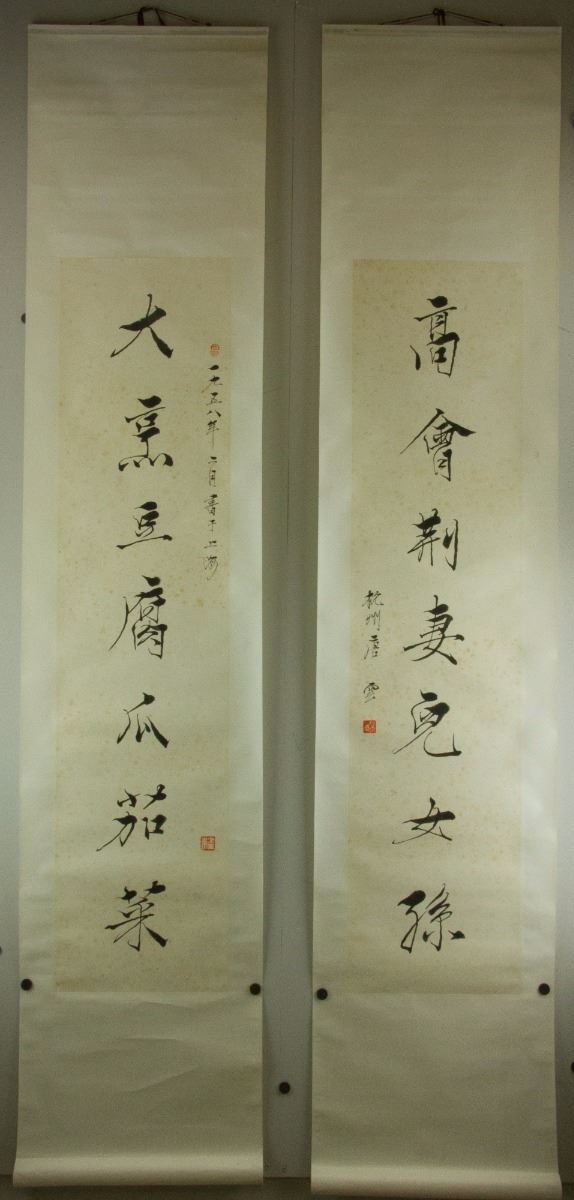 高會荆妻兒女孫
杭州唐雲
一九五八年二月書于上海
大烹豆腐瓜茄菜